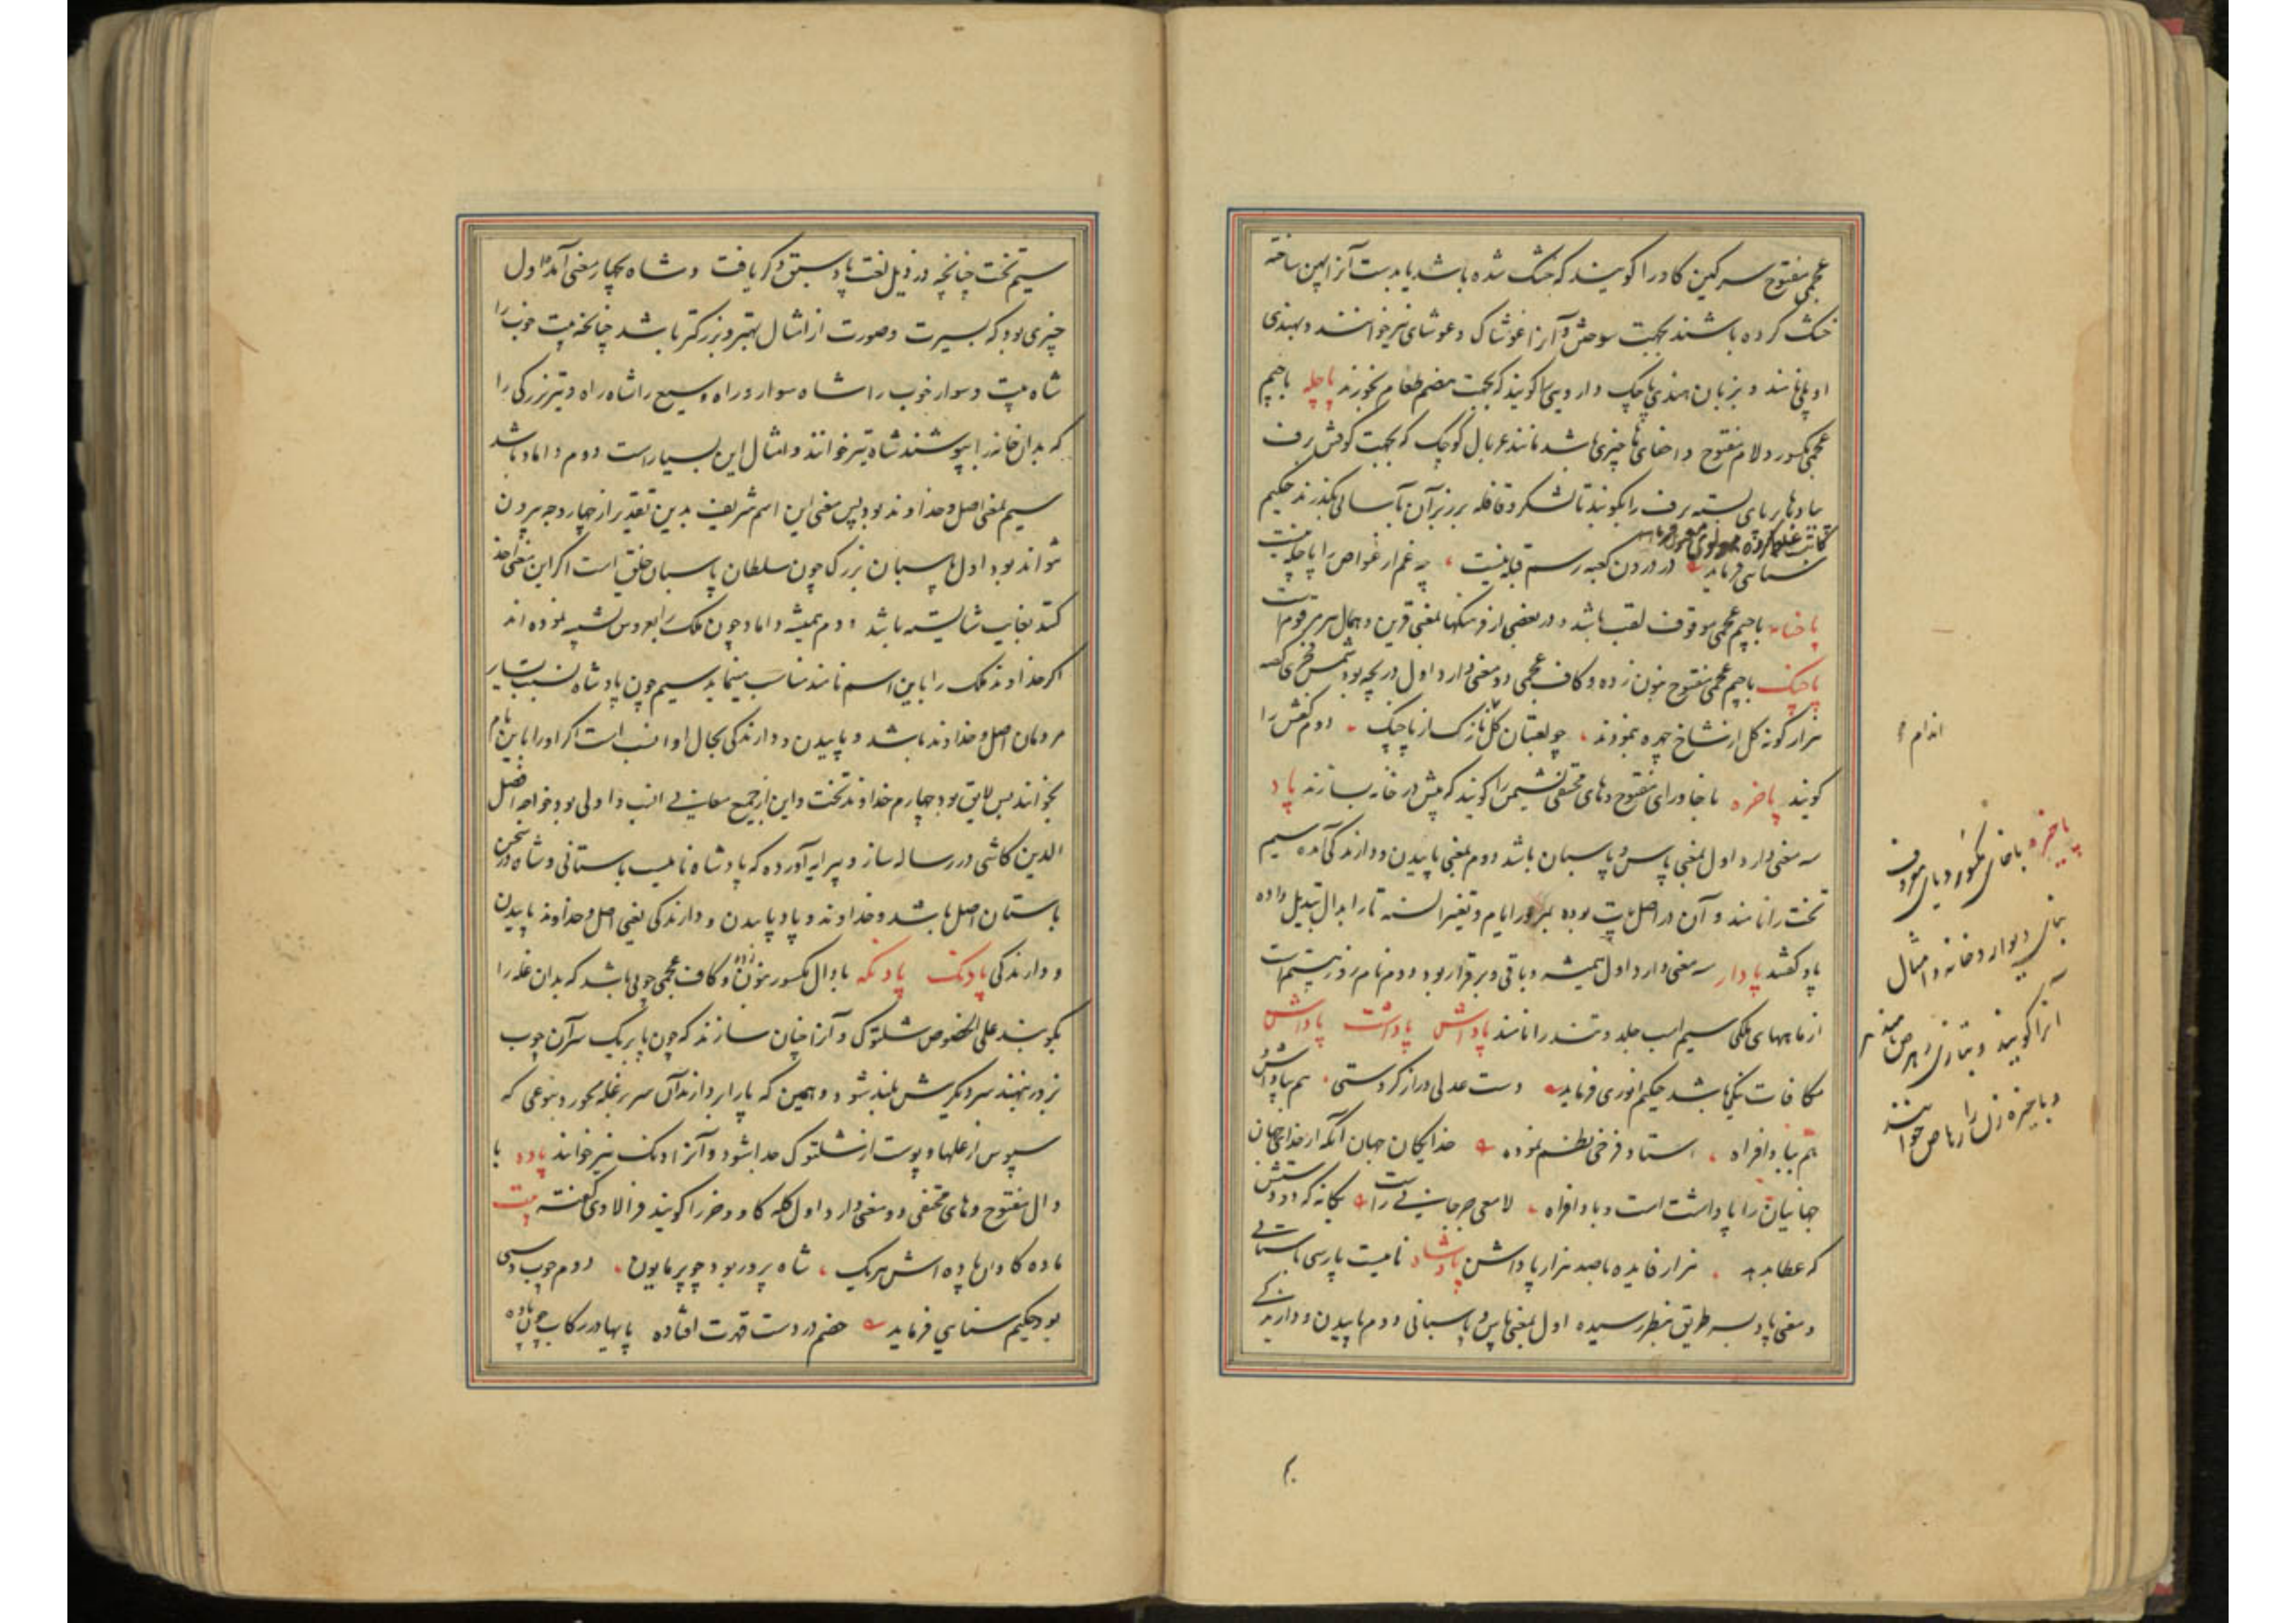 عجمی مفتوح سرکین کاو را کویند که خشک شده باشد یا بدست آنرا پهن ساخته
خشک کرده باشند بجهت سوختن و آنرا غوشاک و غوشای نیز خوانند و بهندی
اوپلی نامند و بزبان هندی پاچک داروییرا کویند که بجهت هضم طعام بخورند پاچله باجیم
عجمی مکسور و لام مفتوح و اخفای ها چیزی باشد مانند غربال کوچک که بجهت کوفتن برف
بپاها بربای بسته برف را بکوبند تا لشکر و قافله بر زبر آن بآسانی بگذرند حکیم
سنایی فرماید در درون کعبه رسم قبله نیست چه غم ار غواص را پاچله نیست
پاچنامه باجیم عجمی موقوف لقب باشد و در بعضی از فرهنگها بمعنی قرین و همال مرقوم است
پاچنک باجیم عجمی مفتوح بنون زده و کاف عجمی دو معنی دارد اول دریچه بود شمس فخری گفته
هزار کونه کل از شاخ چهره بنمودند چو لعبتان کل نازک از پاچنک دوم کفش را
کویند پاخره با خا و رای مفتوح و های مختفی نشیمن را کویند که پیش در خانه بسازند پاد
سه معنی دارد اول بمعنی پاس و پاسبان باشد دوم بمعنی پاییدن و دارندکی آمده سیم
تخت را نامند و آن در اصل پات بوده بمرور ایام و تغیر السنه تا را بدال تبدیل داده
پاد کفتند پادار سه معنی دارد اول همیشه و باقی و برقرار بود دوم نام روز بیستم است
از ماههای ملکی سیم اسب جلد و تند را نامند پاداش پاداشت پاداشن
مکافات نیکی باشد حکیم انوری فرماید دست عدلی دراز کردستی هم بپاداش
هم ببادافراه استاد فرخی نظم نموده خدایکان جهان آنکه از خدای جهان
جهانیان را پاداشت است و بادافراه لامعی جرجانی راست یکانه که دو دستش
که عطا بدهد هزار فایده باصد هزار پاداشن پادشاه نامیست پارسی باستانی
و معنی پاد بسه طریق بنظر رسیده اول بمعنی پاس و پاسبانی و دوم پاییدن و دارندکی
اندام
پاخیره باخای مکسور و یای معروف
بنای دیوار و خانه و امثال
آنرا کویند و بتازی رهص نامند
و پاخیره زن را رهاص خوانند
سیم تخت چنانچه در ذیل لغت پاد سبق ذکر یافت و شاه بچهار معنی آمده اول
چیزی بود که بسیرت و صورت از امثال بهتر و بزرکتر باشد چنانچه بیت خوب را
شاه بیت و سوار خوب را شاه سوار و راه وسیع را شاه راه و تیر بزرکی را
که بدان خانه را بپوشند شاه تیر خوانند و امثال این بسیار است دوم داماد باشد
سیم بمعنی اصل و خداوند بود پس معنی این اسم شریف بدین تقدیر از چهار وجه بیرون
نتواند بود اول پاسبان بزرک چون سلطان پاسبان خلق است اگر این معنی اخذ
کنند بغایت شایسته باشد دوم همیشه داماد چون ملک را بعروس تشبیه نموده اند
اکر خداوند ملک را باین اسم نامند مناسب مینماید سیم چون پادشاه نسبت بسایر
مردمان اصل و خداوند باشد و پاییدن و دارندکی بحال او انسب است اکر او را باین نام
بخوانند بس لایق بود چهارم خداوند تخت و این از جمیع معانی انسب و اولی بود خواجه افضل
الدین کاشی در رساله ساز و پیرایه آورده که پادشاه نامیست باستانی و شاه در سخن
باستان اصل باشد و خداوند و پاد پاییدن و دارندکی یعنی اصل و خداوند پاییدن
و دارندکی پادنک پادنکه با دال مکسور بنون زده و کاف عجمی چوبی باشد که بدان غله را
بکوبند علی الخصوص شلتوک و آنرا چنان سازند که چون پا بر یک سر آن چوب
بزور نهند سر دیکرش بلند شود و همین که پا را بردارند آن سر بر غله بخورد بنوعی که
سپوس از غلها و پوست از شلتوک جدا شود و آنرا دنک نیز خوانند پاده با
دال مفتوح و های مختفی دو معنی دارد اول کله کاو و خر را کویند فرالاوی گفته بیت
ماده کاوان پاده اش هریک شاه پرور بود چو پرمایون دوم چوب دستی
بود حکیم سنایی فرماید خصم در دست قهرت افتاده پایها در رکاب چون پاده